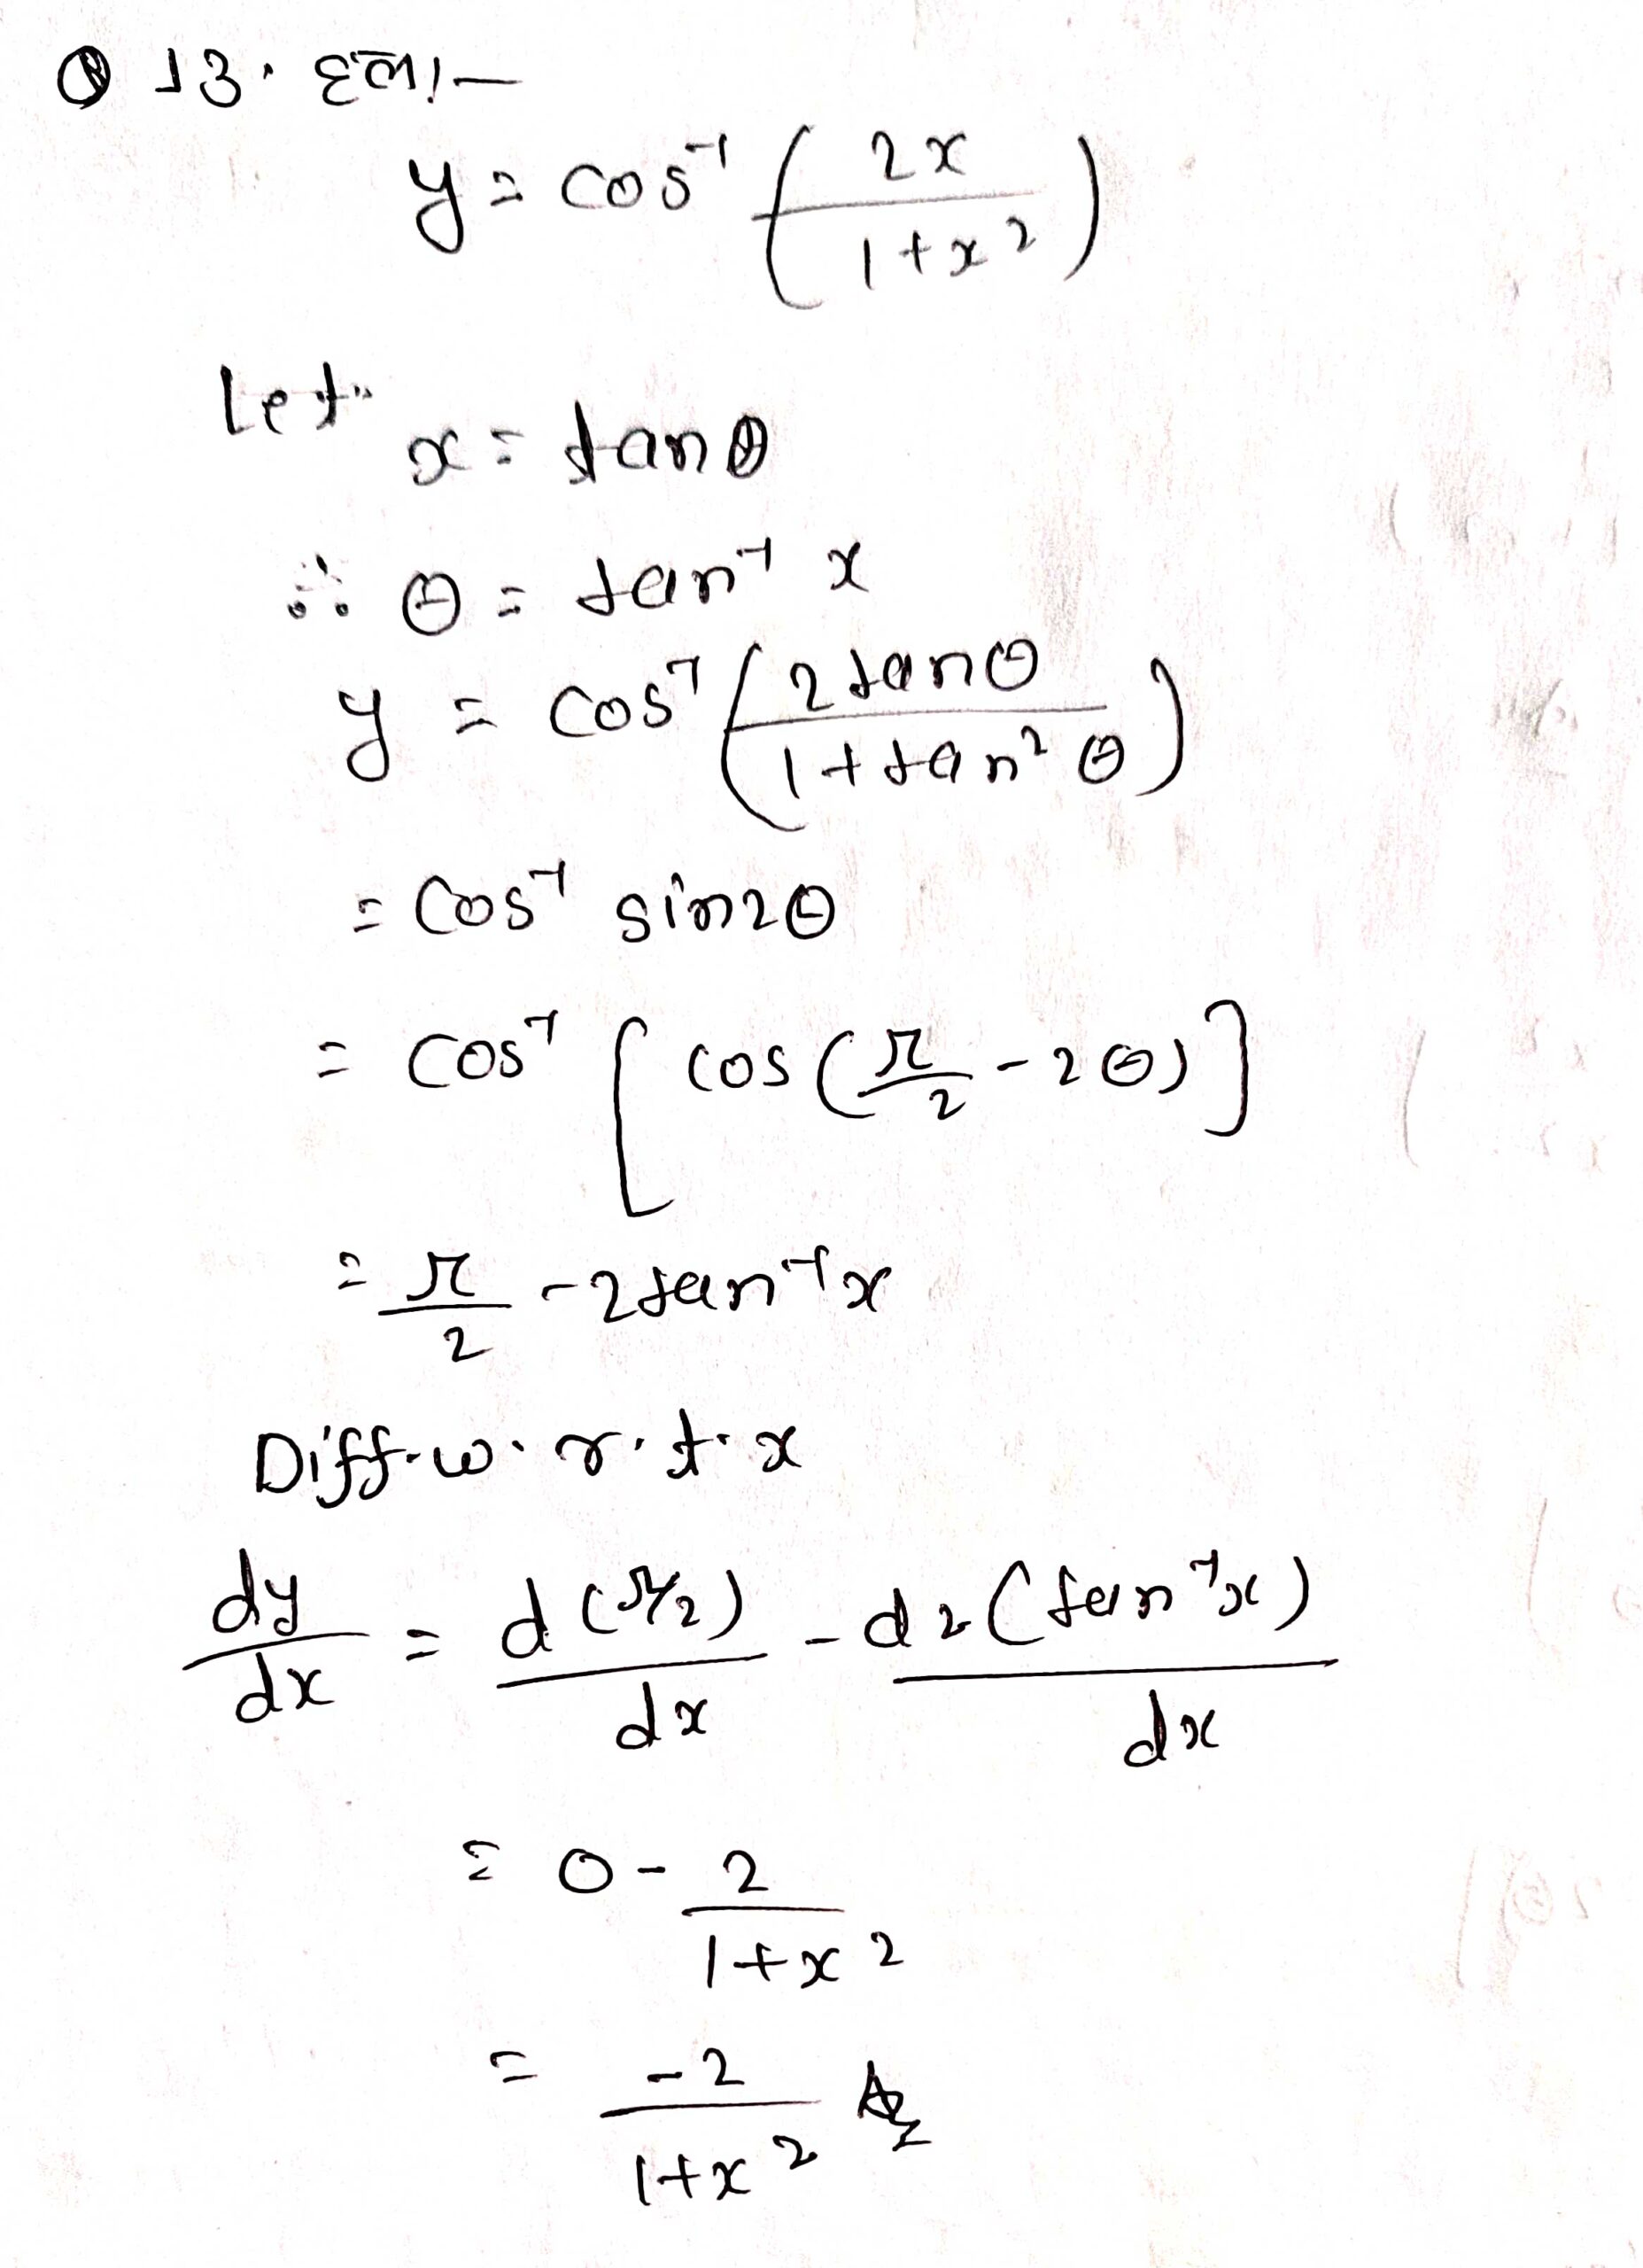 Q 13. हल:-
y = cos⁻¹ (2x / 1+x²)
Let
x = tanθ
∴ θ = tan⁻¹ x
y = cos⁻¹ (2tanθ / 1+tan²θ)
= cos⁻¹ sin2θ
= cos⁻¹ [cos(π/2 - 2θ)]
= π/2 - 2tan⁻¹x
Diff. w. r. t. x
dy/dx = d(π/2)/dx - d2(tan⁻¹x)/dx
= 0 - 2/1+x²
= -2/1+x²